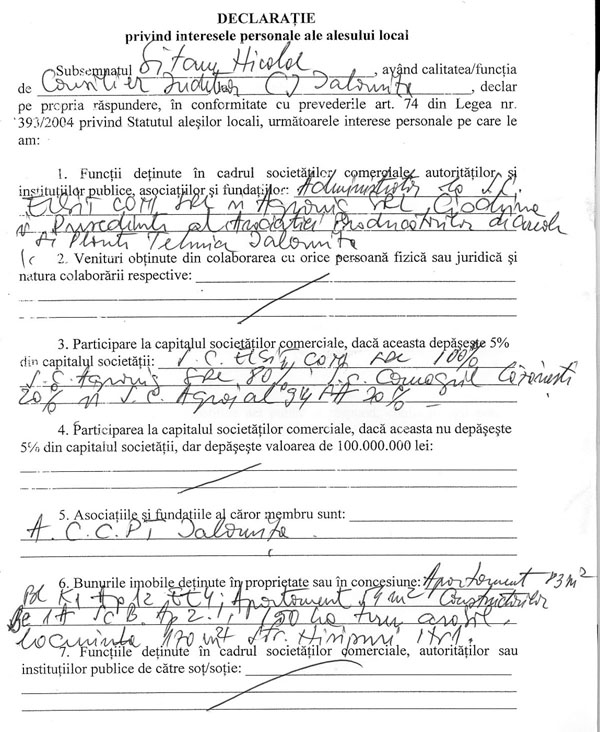 DECLARAȚIE
privind interesele personale ale alesului local
Subsemnatul Sitaru Nicolae, având calitatea/funcția
de Consilier Județean CJ Ialomița, declar
pe propria răspundere, în conformitate cu prevederile art. 74 din Legea nr.
393/2004 privind Statutul aleșilor locali, următoarele interese personale pe care le
am:
1. Funcții deținute în cadrul societăților comerciale, autorităților și
instituțiilor publice, asociațiilor și fundațiilor: Administrator la S.C.
ELSIT COM SRL și SRL
și Președinte al Asociației Producătorilor
și Plante Tehnice Ialomița
2. Venituri obținute din colaborarea cu orice persoană fizică sau juridică și
natura colaborării respective:
3. Participare la capitalul societăților comerciale, dacă aceasta depășește 5%
din capitalul societății: S.C. ELSIT COM SRL 100%
S.C. SRL 80%, S.C. Comagril
20% și S.C. 94 20%
4. Participarea la capitalul societăților comerciale, dacă aceasta nu depășește
5% din capitalul societății, dar depășește valoarea de 100.000.000 lei:
5. Asociațiile și fundațiile al căror membru sunt:
A.C.C.P.T Ialomița
6. Bunurile imobile deținute în proprietate sau în concesiune: Apartament 83 m²
Bl K1 Ap 12 Et 4; Apartament m² Constructorilor
1A Sc B. Ap 2.; 150 ha
locuința 170 m² Str.
7. Funcțiile deținute în cadrul societăților comerciale, autorităților sau
instituțiilor publice de către soț/soție: